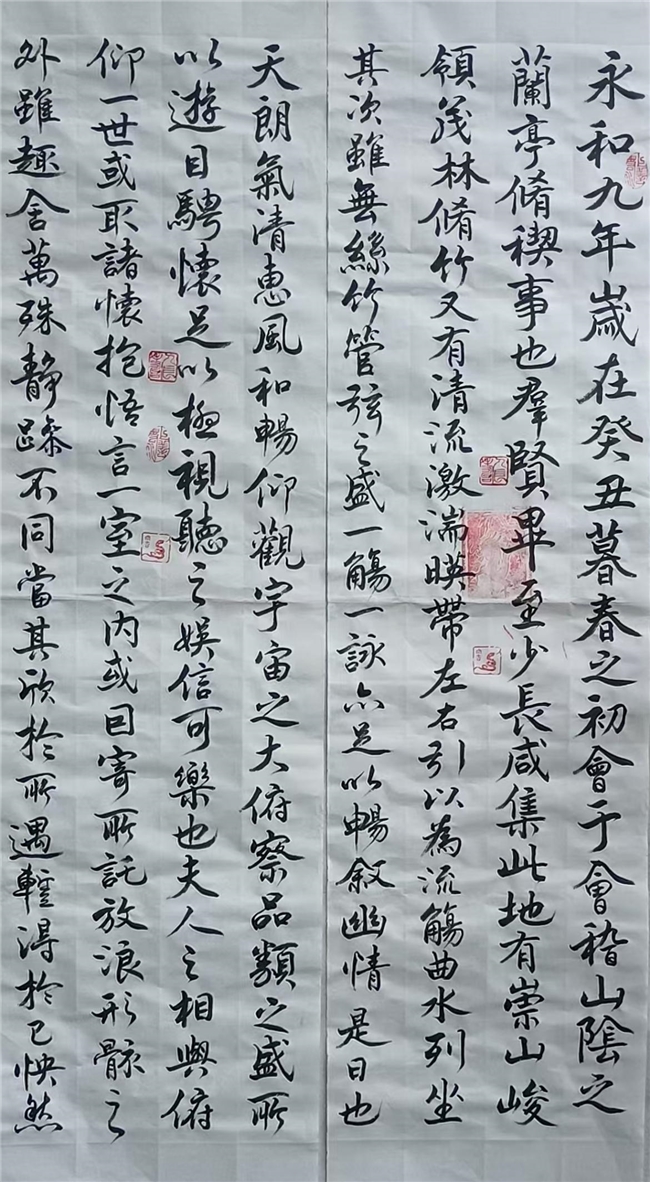 永和九年嵗在癸丑暮春之初會于會稽山陰之
蘭亭脩稧事也羣賢畢至少長咸集此地有崇山峻
領茂林脩竹又有清流激湍暎帶左右引以為流觴曲水列坐
其次雖無絲竹管弦之盛一觴一詠亦足以暢敘幽情是日也
天朗氣清惠風和暢仰觀宇宙之大俯察品類之盛所
以遊目騁懷足以極視聽之娛信可樂也夫人之相與俯
仰一世或取諸懷抱悟言一室之內或因寄所託放浪形骸之
外雖趣舍萬殊靜躁不同當其欣於所遇蹔得於己怏然